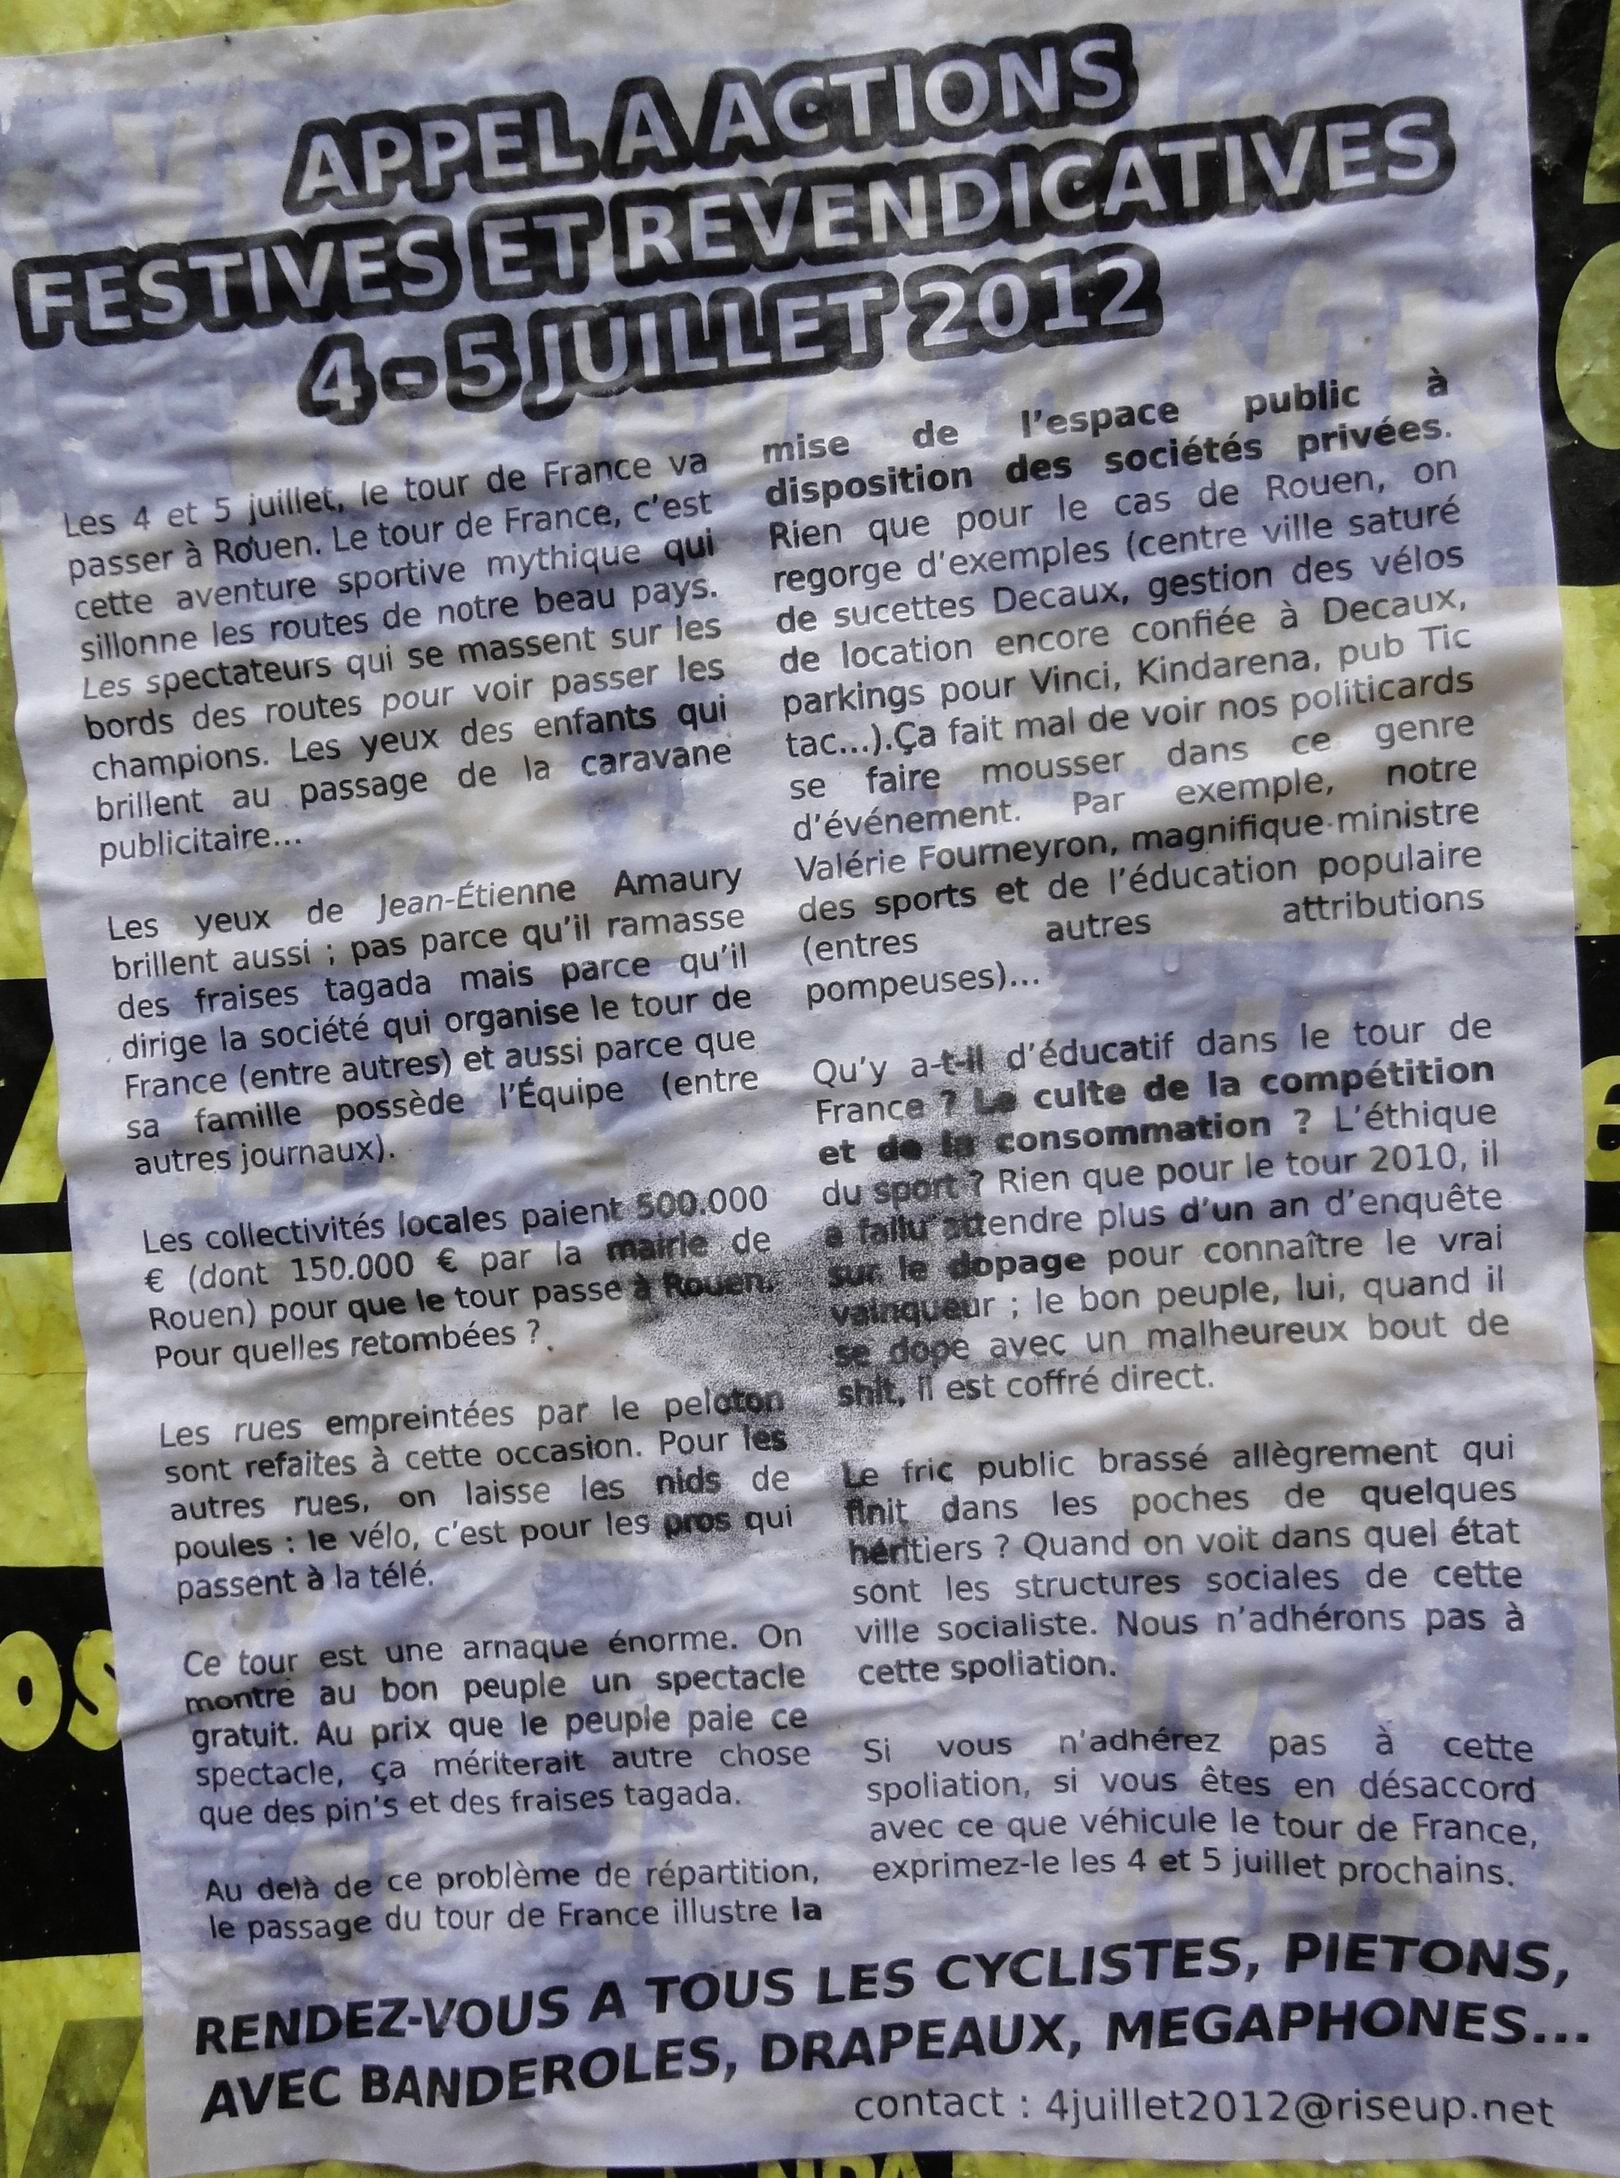 APPEL A ACTIONS
FESTIVES ET REVENDICATIVES
4-5 JUILLET 2012
Les 4 et 5 juillet, le tour de France va
passer à Rouen. Le tour de France, c'est
cette aventure sportive mythique qui
sillonne les routes de notre beau pays.
Les spectateurs qui se massent sur les
bords des routes pour voir passer les
champions. Les yeux des enfants qui
brillent au passage de la caravane
publicitaire...
Les yeux de Jean-Étienne Amaury
brillent aussi ; pas parce qu'il ramasse
des fraises tagada mais parce qu'il
dirige la société qui organise le tour de
France (entre autres) et aussi parce que
sa famille possède l'Équipe (entre
autres journaux).
Les collectivités locales paient 500.000
€ (dont 150.000 € par la mairie de
Rouen) pour que le tour passe à Rouen.
Pour quelles retombées ?
Les rues empreintées par le peloton
sont refaites à cette occasion. Pour les
autres rues, on laisse les nids de
poules : le vélo, c'est pour les pros qui
passent à la télé.
Ce tour est une arnaque énorme. On
montre au bon peuple un spectacle
gratuit. Au prix que le peuple paie ce
spectacle, ça mériterait autre chose
que des pin's et des fraises tagada.
Au delà de ce problème de répartition,
le passage du tour de France illustre la
mise de l'espace public à
disposition des sociétés privées.
Rien que pour le cas de Rouen, on
regorge d'exemples (centre ville saturé
de sucettes Decaux, gestion des vélos
de location encore confiée à Decaux,
parkings pour Vinci, Kindarena, pub Tic
tac...).Ça fait mal de voir nos politicards
se faire mousser dans ce genre
d'événement. Par exemple, notre
Valérie Fourneyron, magnifique ministre
des sports et de l'éducation populaire
(entres autres attributions
pompeuses)...
Qu'y a-t-il d'éducatif dans le tour de
France ? Le culte de la compétition
et de la consommation ? L'éthique
du sport ? Rien que pour le tour 2010, il
a fallu attendre plus d'un an d'enquête
sur le dopage pour connaître le vrai
vainqueur ; le bon peuple, lui, quand il
se dope avec un malheureux bout de
shit, il est coffré direct.
Le fric public brassé allègrement qui
finit dans les poches de quelques
héritiers ? Quand on voit dans quel état
sont les structures sociales de cette
ville socialiste. Nous n'adhérons pas à
cette spoliation.
Si vous n'adhérez pas à cette
spoliation, si vous êtes en désaccord
avec ce que véhicule le tour de France,
exprimez-le les 4 et 5 juillet prochains.
RENDEZ-VOUS A TOUS LES CYCLISTES, PIETONS,
AVEC BANDEROLES, DRAPEAUX, MEGAPHONES...
contact : 4juillet2012@riseup.net